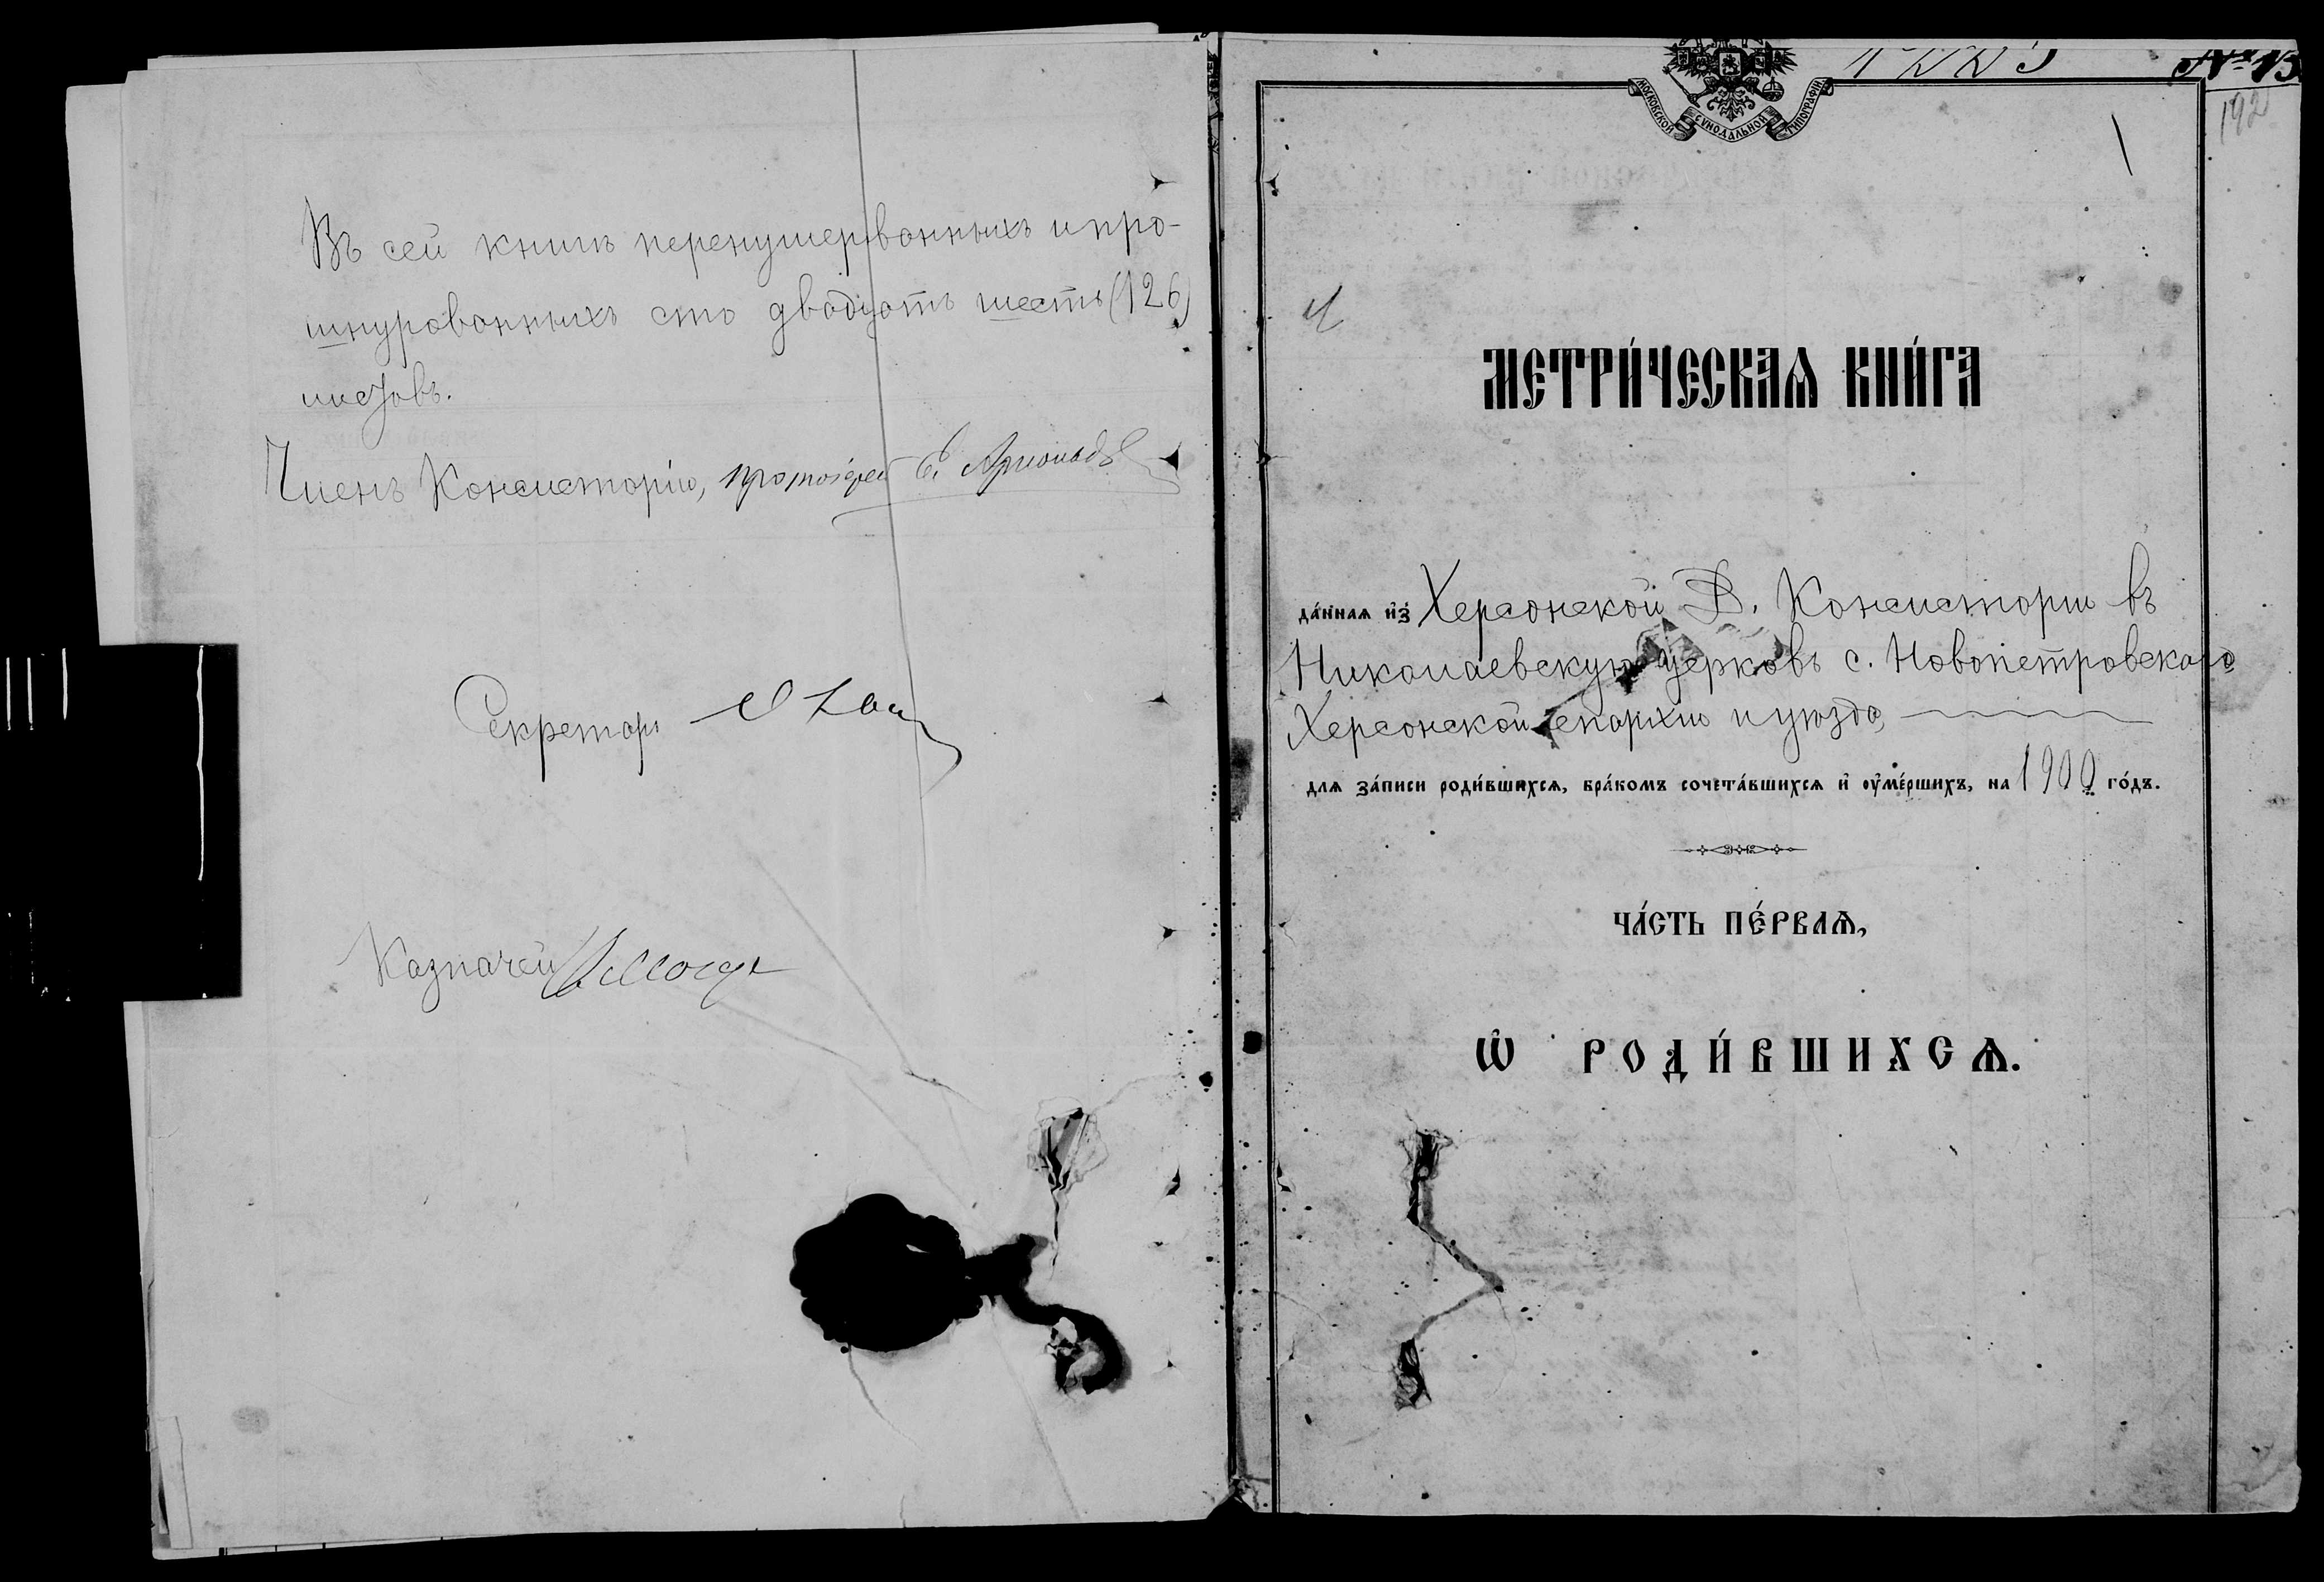 Въ сей книгѣ перенумерованныхъ и про-
шнурованныхъ сто двадцать шесть (126)
листовъ.
Членъ Консисторіи, протоіерей
Секретарь
Казначей
МОСКОВСКОЙ СѴНОДАЛЬНОЙ ТИПОГРАФІИ
№ 13
192
1
МЕТРИ́ЧЕСКАѦ КНИ́ГА
да́ннаѧ и҆з̾ Херсонской Д. Консисторіи въ
Николаевскую церковь с. Новопетровскаго
Херсонской епархіи и уѣзда
длѧ за́писи роди́вшихсѧ, бра́комъ сочета́вшихсѧ и҆ ᲂу҆ме́ршихъ, на 1900 го́дъ.
ЧА́СТЬ ПЕ́РВАѦ,
Ѡ҆ РОДИ́ВШИХСѦ.